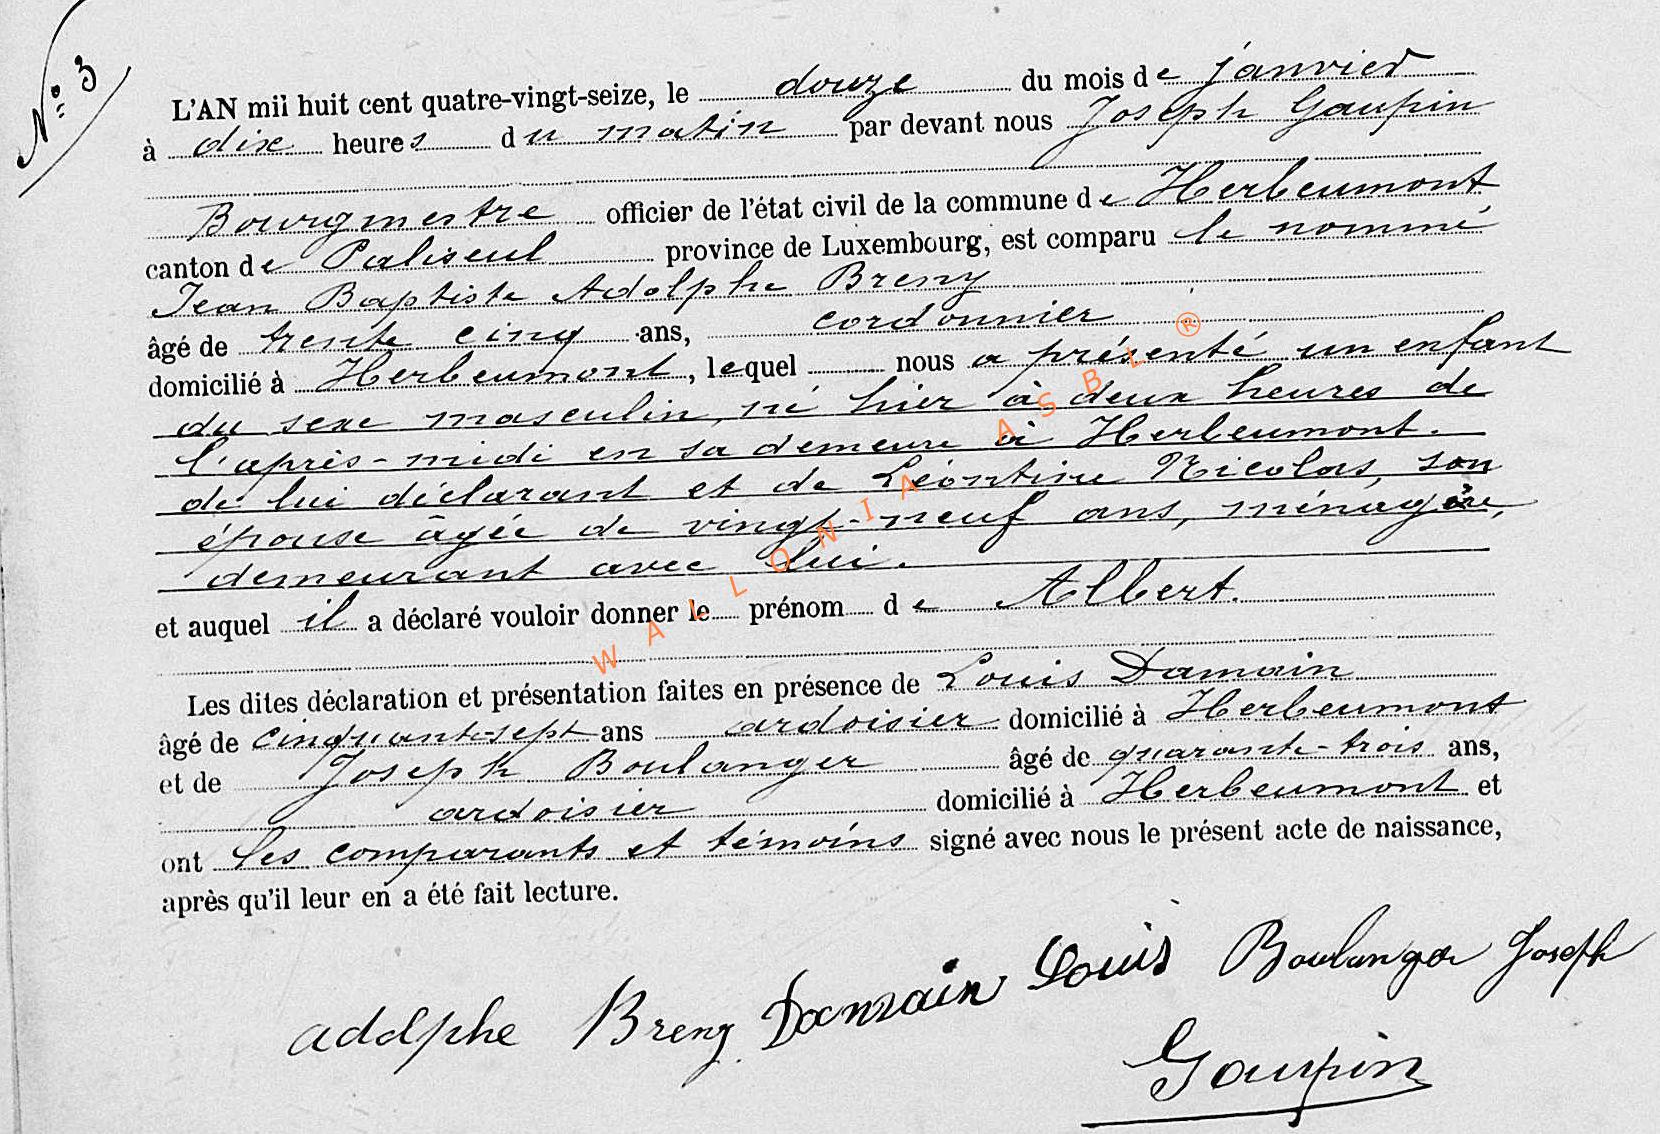 N° 3
L'AN mil huit cent quatre-vingt-seize, le douze du mois de janvier
à dix heures du matin par devant nous Joseph Gaupin
Bourgmestre officier de l'état civil de la commune de Herbeumont
canton de Paliseul province de Luxembourg, est comparu le nommé
Jean Baptiste Adolphe Breny
âgé de trente cinq ans, cordonnier
domicilié à Herbeumont, lequel nous a présenté un enfant
du sexe masculin, né hier à deux heures de
l'après-midi en sa demeure à Herbeumont.
de lui déclarant et de Léontine Nicolas, son
épouse âgée de vingt-neuf ans, ménagère,
demeurant avec lui.
et auquel il a déclaré vouloir donner le prénom de Albert.
Les dites déclaration et présentation faites en présence de Louis Damain
âgé de cinquante-sept ans ardoisier domicilié à Herbeumont
et de Joseph Boulanger âgé de quarante-trois ans,
ardoisier domicilié à Herbeumont et
ont les comparants et témoins signé avec nous le présent acte de naissance,
après qu'il leur en a été fait lecture.
adolphe Breny Damain Louis Boulanger Joseph
Gaupin
WALLONIA ASBL ®